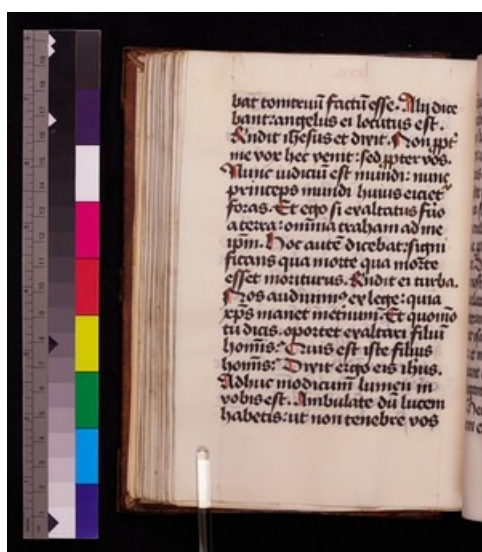 bat tonitruū factū esse. Alij dice
bant: angelus ei locutus est.
Rn̄dit ihesus et dixit. Non ꝓpt̄
me vox hec venit: sed ꝓpter vos.
Nunc iudiciū est mundi: nunc
princeps mundi huius eiciet᷑
foras. Et ego si exaltatus fūo
a terra: omnia traham ad me
ip̄m. Hoc autē dicebat: signi
ficans qua morte qua morte
esset moriturus. Rn̄dit ei turba.
Nos audiuim⁹ ex lege: quia
xp̄s manet in et̄num. Et quomō
tu dicis. oportet exaltari filiū
homīs: Quis est iste filius
homīs: Dixit ergo eis ih̄us.
Adhuc modicum lumen in
vobis est. Ambulate dū lucem
habetis: ut non tenebre vos